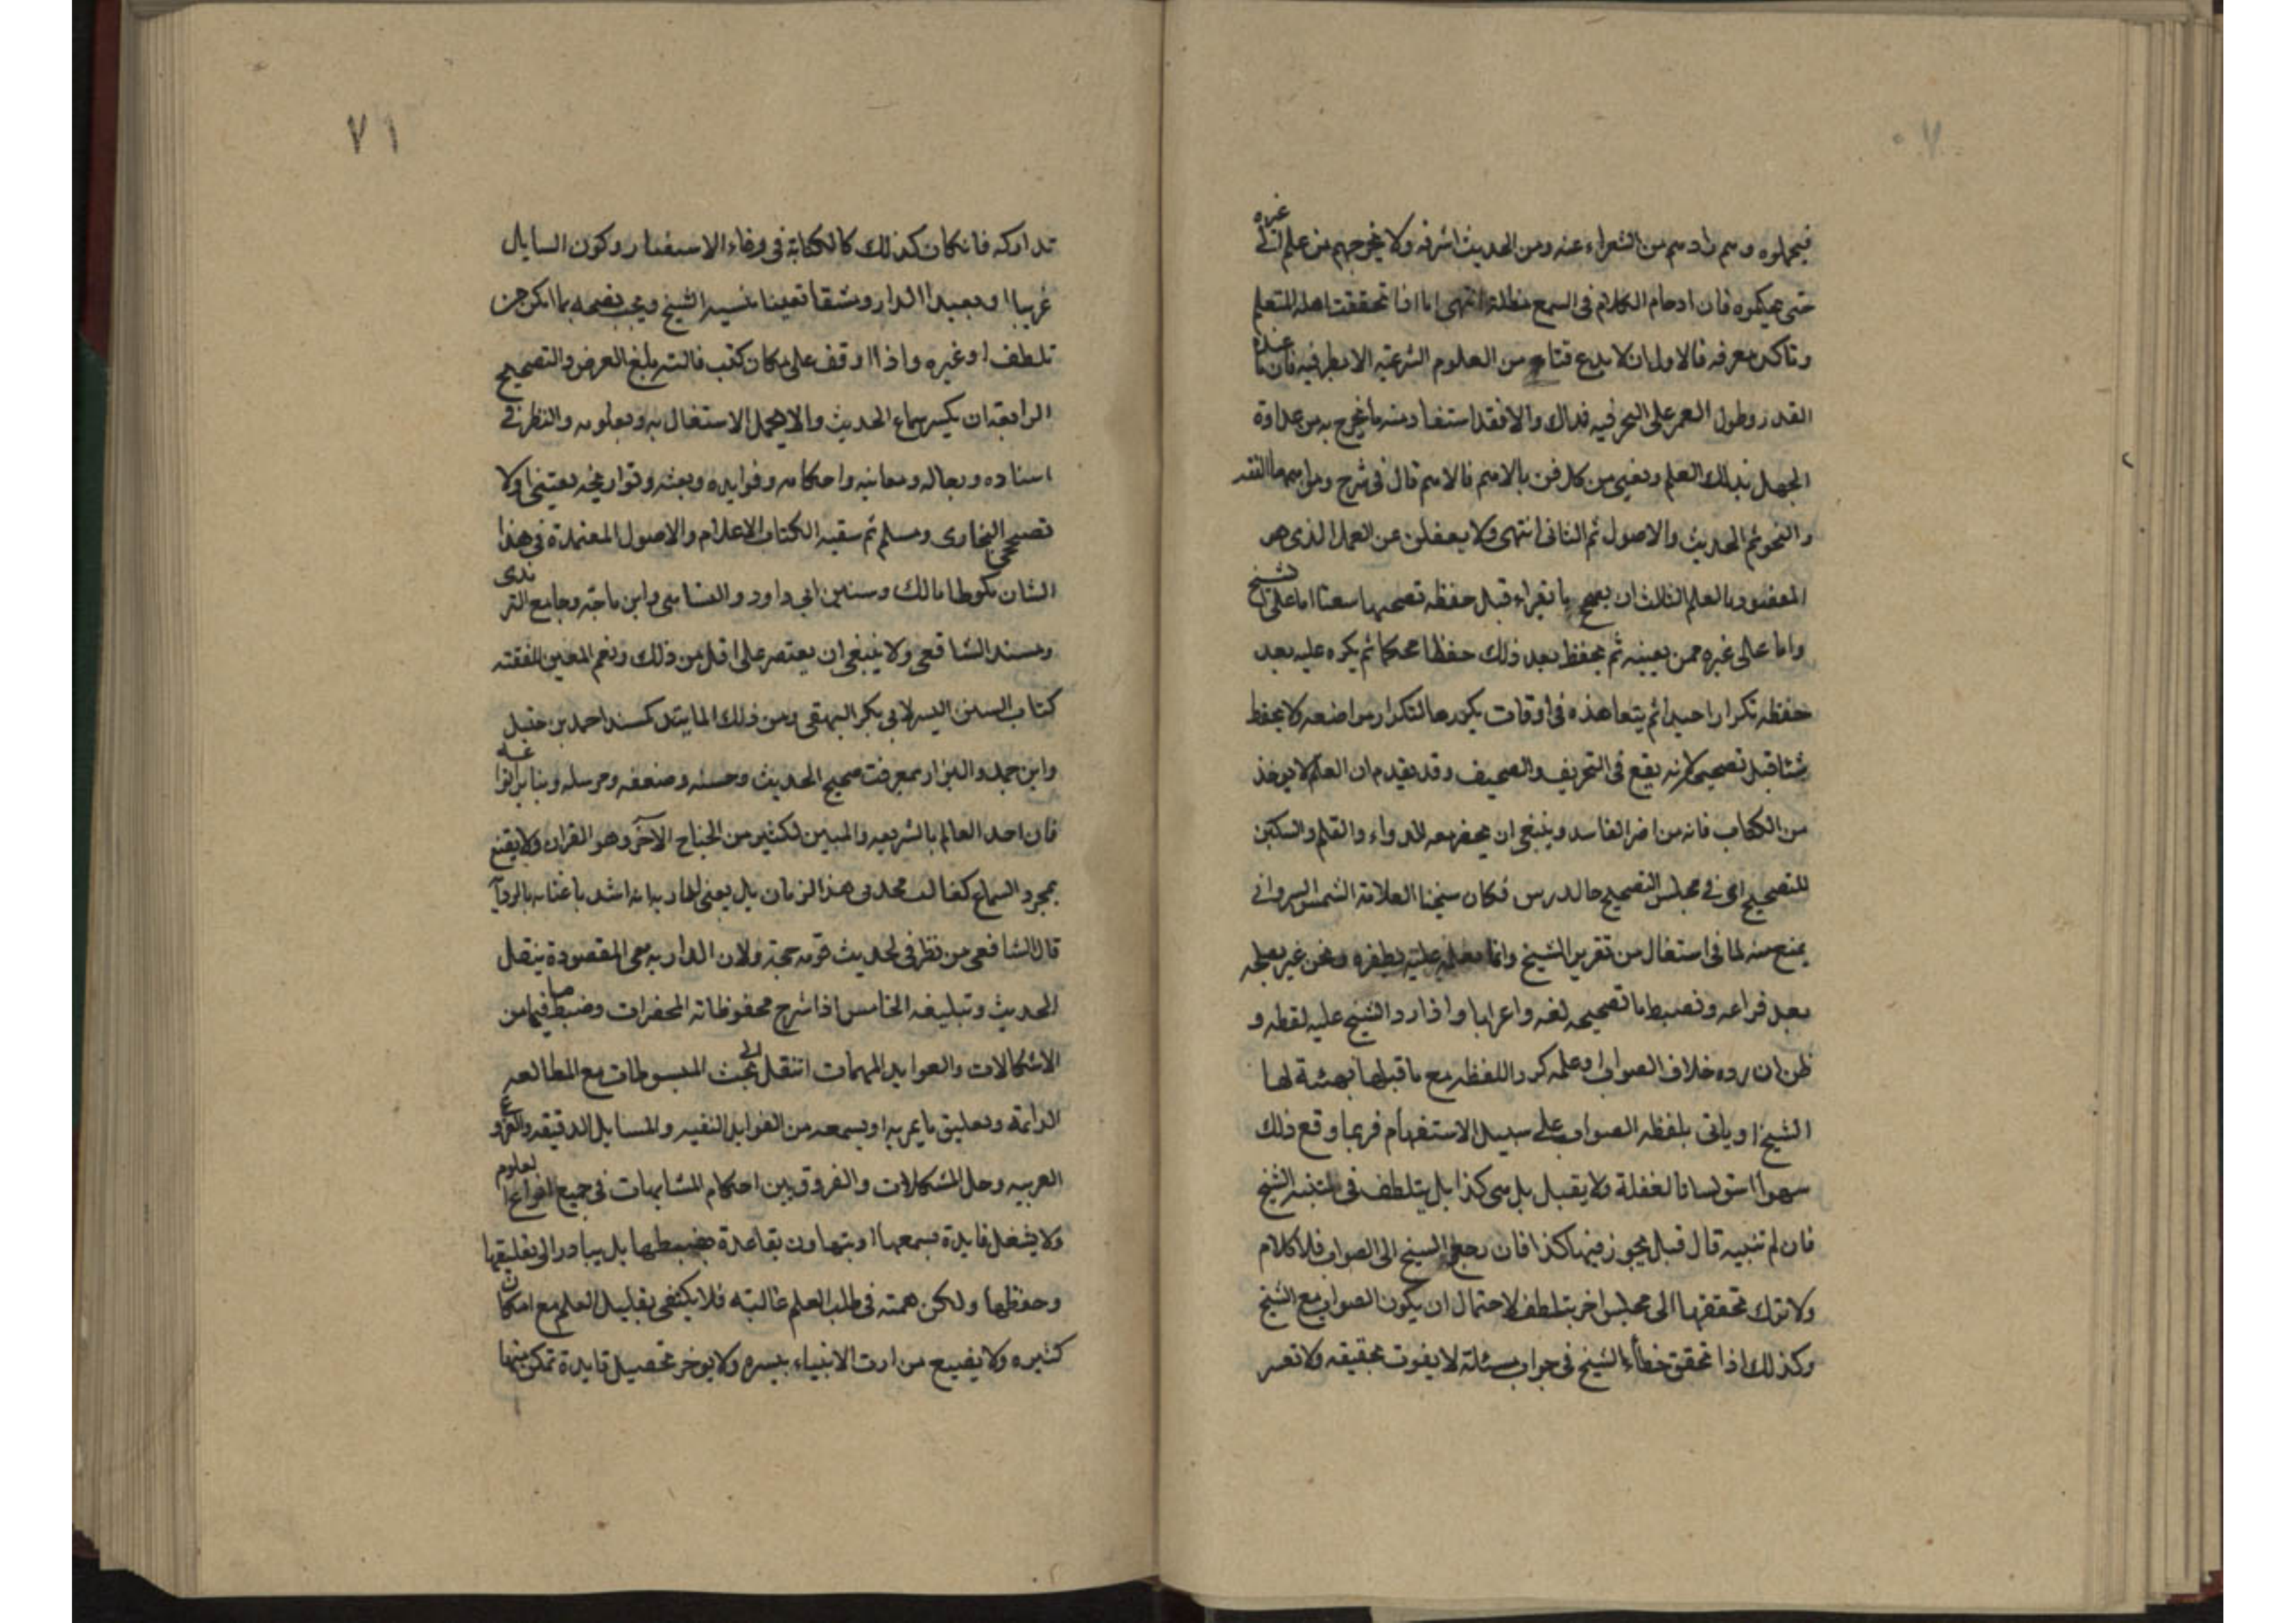 ٧٠
غيره
فيحملوه وسم رادسم من الشعراء عنه ومن الحديث اشرفه ولا يخرجهم من علم الى
حتى يحكموه فان ادحام الكلام فى السمع مظلة انتهى اما اذا تحققت اهله المتعلم
وتاكد معرفه فالاولى ان لا يدع فنا من العلوم الشرعية الا نظر فيه فان عده
القدر وطول العمر على البحر فيه فذاك والا فقد استفاد منه ما يخرج به من عداوة
الجهل بذلك العلم ويعنى من كل فن بالاهم فالاهم قال فى شرح
والنحو ثم الحديث والاصول ثم الثانى انتهى ولا يغفلن عن العمل الذى هو
المقصود بالعلم الثالث ان يصحح ما يقراء قبل حفظه تصحيحا اما على الشيخ
واما على غيره ممن يعينه ثم يحفظ بعد ذلك حفظا محكما ثم يكره عليه بعد
حفظه تكرارا جيدا ثم يتعاهده فى اوقات يكررها لتكرار مواضعه ولا يحفظ
شيئا قبل تصحيحه لانه يقع فى التحريف والتصحيف وقد يقدم ان العلم لا يوخذ
من الكتاب فانه من اضر المفاسد وينبغى ان يحضر معه الدواء والقلم والسكين
للتصحيح اى فى مجلس التصحيح حال درس فكان شيخنا العلامة الشمس السروانى
يمنع منه لما فى استغال من تقرير الشيخ وانما يعلم عليه بظفره ونحن غير يصلحه
بعد فراغه ونضبط ما تصحيحه لغه واعرابا واذا رد الشيخ عليه لفظه و
ظن ان رده خلاف الصواب او علمه كرر اللفظه مع ما قبلها
الشيخ او ياتى بلفظه الصواب على سبيل الاستفهام فربما وقع ذلك
سهوا لغفلة ولا يقبل بل هى كذا بل يتلطف فى تنبيه الشيخ
فان لم تنبيه قال قبل يجوز فيها كذا فان رجع الشيخ الى الصواب فلا كلام
ولا ترك تحققها الى مجلس اخر بتلطف لاحتمال ان يكون الصواب مع الشيخ
وكذلك اذا تحقق خطأ الشيخ فى جواب مسئلة لا يفوت تحقيقه ولا تعسر
٧١
تداركه فان كان كذلك كالكتابة فى رقاء الاستفتار وكون السايل
غريبا او بعيد الدار ومشقا تعينا تنبيه الشيخ ويجب نصحه بما امكن من
تلطف او غيره واذا اوقف على مكان كتب قالته بلغ العرض والتصحيح
الرابعة ان يكير سماع الحديث والا يهمل الاستغال به وبعلومه والنظر فى
اسناده ورجاله ومعانيه واحكامه وفوايده ولغته وتواريخه يعتنى اولا
تصحيحى البخارى ومسلم ثم بقيه الكتاب الاعلام والاصول المعتمدة فى هذا
الشان كموطا مالك وسنن ابى داود والنسامى وابن ماجه وجامع الترمذى
ومسند الشافعى ولا ينبغى ان يقتصر على اقل من ذلك ونعم المعين للفقته
كتاب السنن اليسر لابى بكر البيهقى ومن ذلك المايند كمسند احمد بن حنبل
وابن حميد والبزار بمعرفت صحيح الحديث وحسنه وضعفه ومرسله
فان احد العالم بالشريعه والمبين لكثير من الجناح الآخر وهو القران ولا يقنع
بمجرد السماع كغالب محدثى هذا الزمان بل يعنى لدرايه اشد باعتنايه بالروآ
قال الشافعى من نظر فى لحديث قوته حجته ولان الدرايه هى المقصودة بنقل
الحديث وتبليغه الخامس اذا شرح محفوظاته المحضرات وضبط ما فيها من
الاشكالات والفوايد المهمات انتقل الى بحث المبسوطات مع المطالعه
الدايمة وتعليق ما يمر به او يسمعه من الفوايد النفيسه والمسايل الدقيقه والفروع
العربيه وحل المشكلات والفروق بين احكام المشابهات فى جميع انواع لعلوم
ولا يشغل فايدة يسمعها او يتهاون بقاعدة يضبطها بل يبادر الى تعليقها
وحفظها ولكن همته فى طلب العلم غالبته فلا يكتفى بقليل العلم مع امكان
كثيره ولا يضيع من ارث الانبياء بيسره ولا يوخر تحصيل فايدة تمكن منها